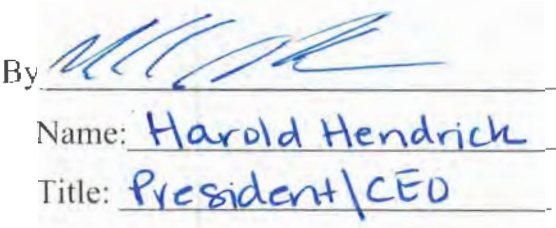 By
Name: Harold Hendrick
Title: President\CEO